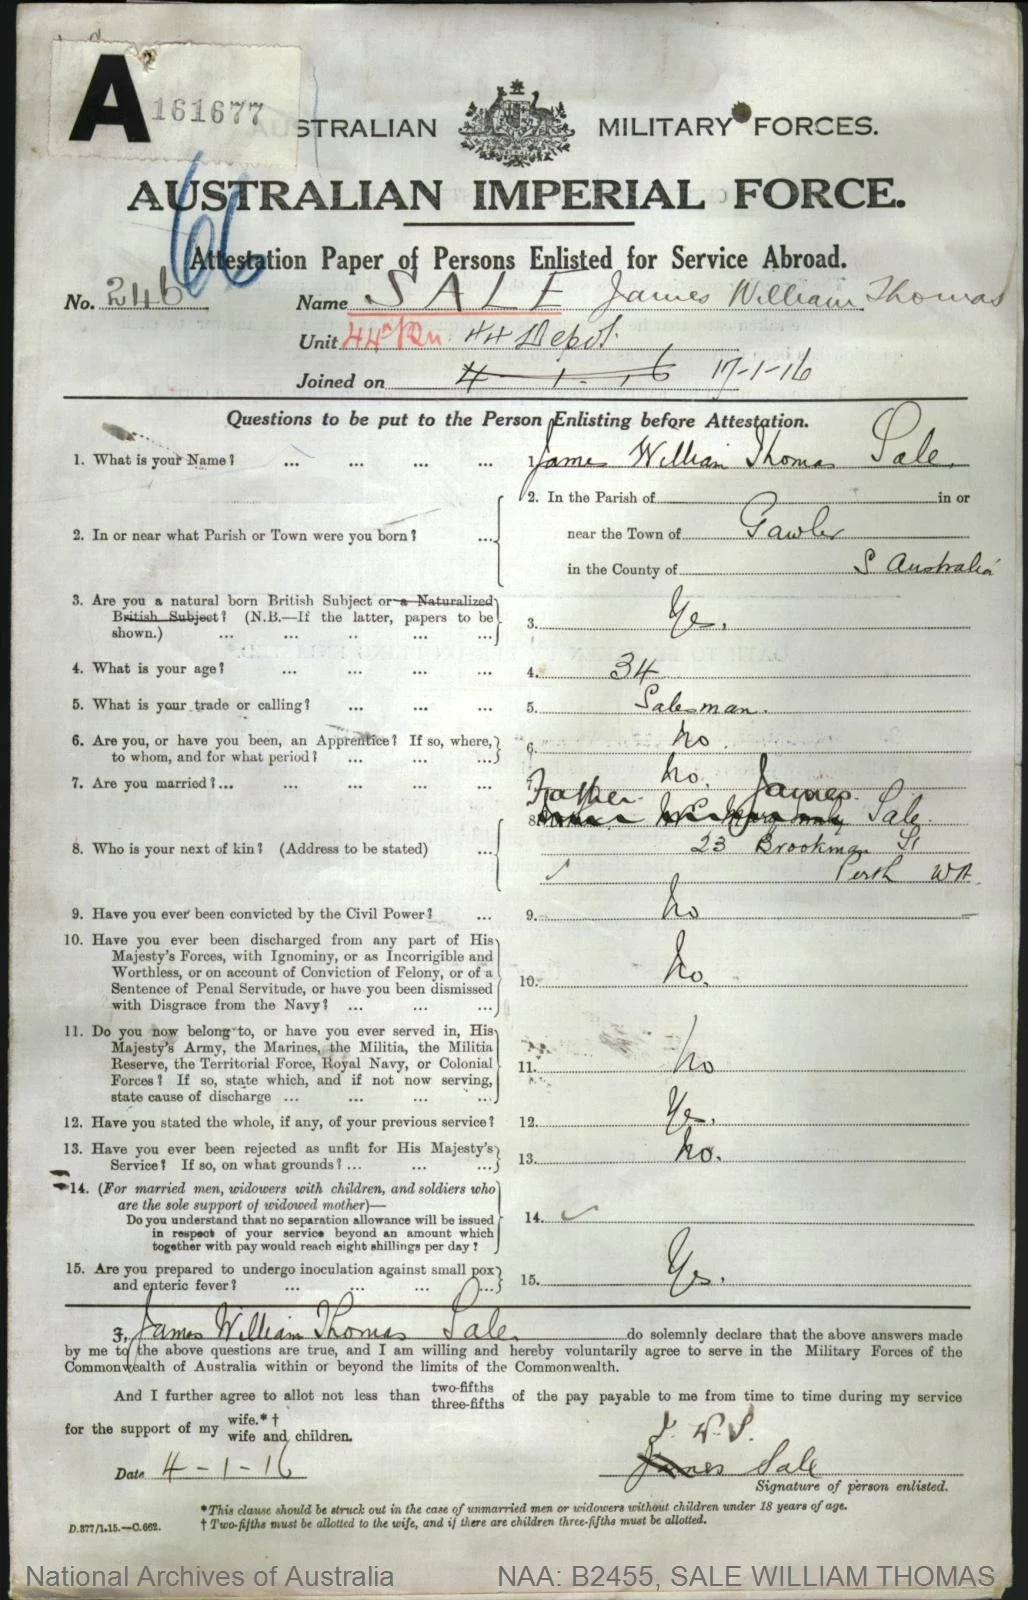 A 161677
AUSTRALIAN MILITARY FORCES.
AUSTRALIAN IMPERIAL FORCE.
66
Attestation Paper of Persons Enlisted for Service Abroad.
No. 246 Name SALE James William Thomas
Unit 44th Bn 44 Depot.
Joined on 4-1-16 17-1-16
Questions to be put to the Person Enlisting before Attestation.
1. What is your Name? ... ... ... ... 1. James William Thomas Sale.
2. In or near what Parish or Town were you born? ... 2. In the Parish of in or
near the Town of Gawler
in the County of S Australia
3. Are you a natural born British Subject or a Naturalized
British Subject? (N.B.—If the latter, papers to be
shown.) ... ... .. ... ... 3. Yes.
4. What is your age? ... ... ... ... 4. 34
5. What is your trade or calling? ... ... ... 5. Salesman.
6. Are you, or have you been, an Apprentice? If so, where,
to whom, and for what period? ... ... ... 6. No.
7. Are you married?... ... ... ... ... 7. No.
8. Who is your next of kin? (Address to be stated) ... 8. Father James Sale.
23 Brookman St
Perth WA.
9. Have you ever been convicted by the Civil Power? ... 9. No
10. Have you ever been discharged from any part of His
Majesty's Forces, with Ignominy, or as Incorrigible and
Worthless, or on account of Conviction of Felony, or of a
Sentence of Penal Servitude, or have you been dismissed
with Disgrace from the Navy? ... ... ... 10. No.
11. Do you now belong to, or have you ever served in, His
Majesty's Army, the Marines, the Militia, the Militia
Reserve, the Territorial Force, Royal Navy, or Colonial
Forces? If so, state which, and if not now serving,
state cause of discharge ... ... ... ... 11. No
12. Have you stated the whole, if any, of your previous service? 12. Yes.
13. Have you ever been rejected as unfit for His Majesty's
Service? If so, on what grounds? ... ... ... 13. No.
14. (For married men, widowers with children, and soldiers who
are the sole support of widowed mother)—
Do you understand that no separation allowance will be issued
in respect of your service beyond an amount which
together with pay would reach eight shillings per day? 14.
15. Are you prepared to undergo inoculation against small pox
and enteric fever? ... ... ... ... 15. Yes.
I, James William Thomas Sale. do solemnly declare that the above answers made
by me to the above questions are true, and I am willing and hereby voluntarily agree to serve in the Military Forces of the
Commonwealth of Australia within or beyond the limits of the Commonwealth.
And I further agree to allot not less than two-fifths three-fifths of the pay payable to me from time to time during my service
for the support of my wife.* † wife and children.
J. W. S.
Date 4-1-16 James Sale
Signature of person enlisted.
*This clause should be struck out in the case of unmarried men or widowers without children under 18 years of age.
† Two-fifths must be allotted to the wife, and if there are children three-fifths must be allotted.
D.377/1.15.—C.662.
National Archives of Australia NAA: B2455, SALE WILLIAM THOMAS